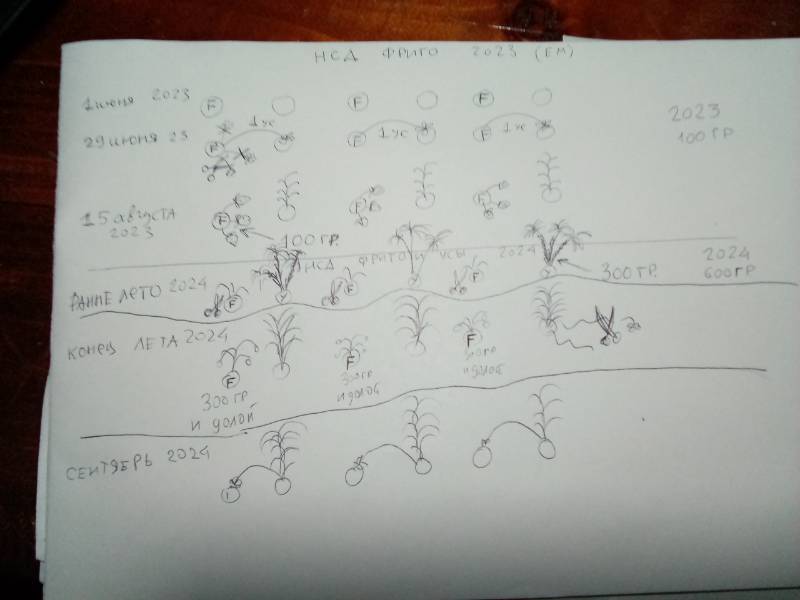 НСД ФРИГО 2023 (ЕМ)
1 июня 2023 F F F
29 июня 23 F 1 УС F 1 УС F 1 УС
2023
100 ГР
15 августа
2023
F F F
100 ГР.
НСД ФРИГО И УСЫ 2024
РАННЕ ЛЕТО 2024 F F F
300 ГР.
2024
600 ГР
КОНЕЦ ЛЕТА 2024
F F F
300 ГР
И ДОЛОЙ
300 ГР
И ДОЛОЙ
300 ГР
И ДОЛОЙ
СЕНТЯБРЬ 2024